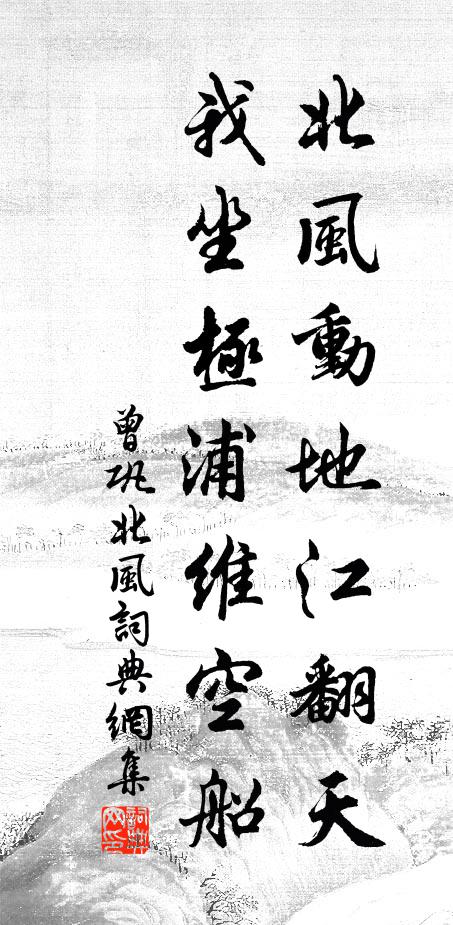 北風動地江翻天
我坐極浦維空船
曾巩北風詞典網集